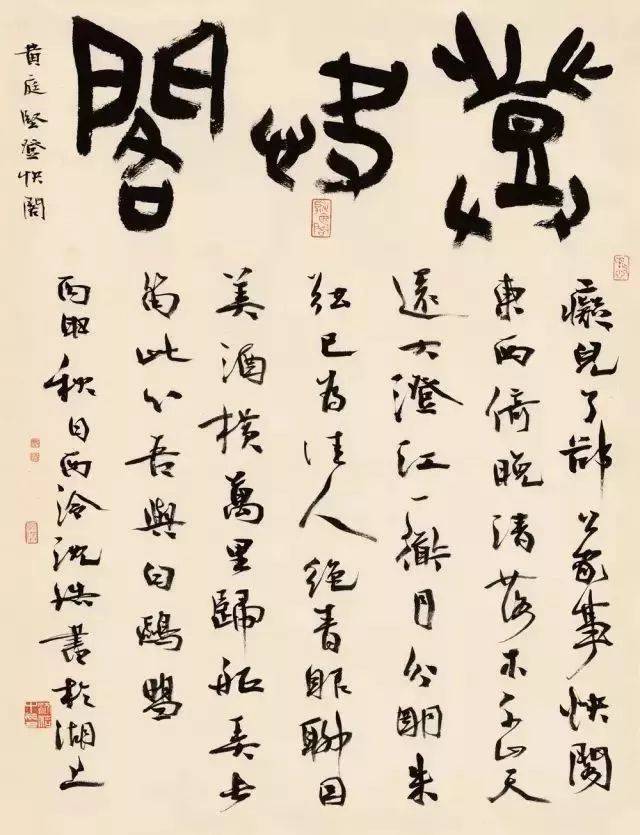 登快閣
癡兒了卻公家事快閣
東西倚晚晴落木千山天
遠大澄江一道月分明朱
弦已為佳人絕青眼聊因
美酒橫萬里歸船弄長
笛此心吾與白鷗盟
丙申秋日西泠沈浩書於湖上
黃庭堅登快閣